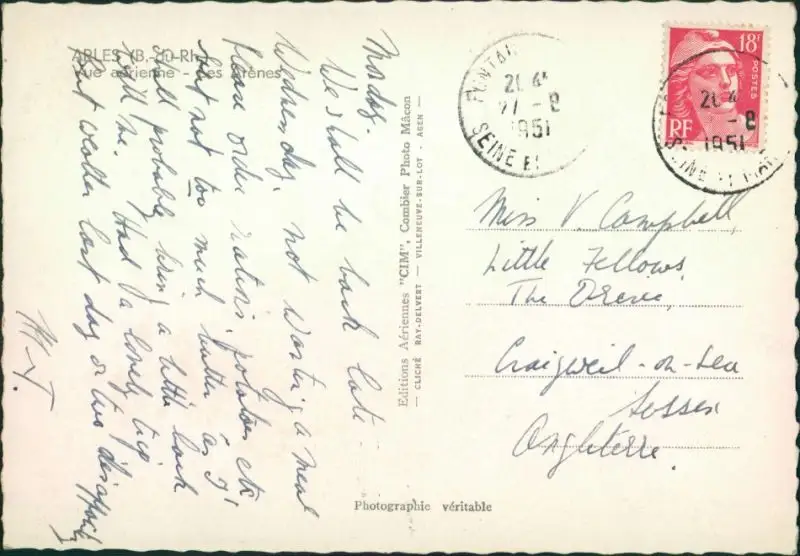 ARLES (B.-du-Rh.)
Vue aérienne - Les Arènes
Monday.
We shall be back late
Wednesday, not wanting a meal
Please order rations, potatoes etc
but not too much butter as I'
will probably bring a little back
with me. Had a lovely trip
but weather last day or two disappointing
Editions Aériennes "CIM", Combier Photo Mâcon
— CLICHÉ RAY-DELVERT — VILLENEUVE-SUR-LOT - AGEN —
Photographic véritable
20 45
27 - 8
1951
SEINE ET
18F
POSTES
RF
20 4
- 8
1951
SEINE ET
Miss V. Campbell,
Little Fellows,
The Drive,
Craigweil-on-Sea
Sussex
Angleterre.